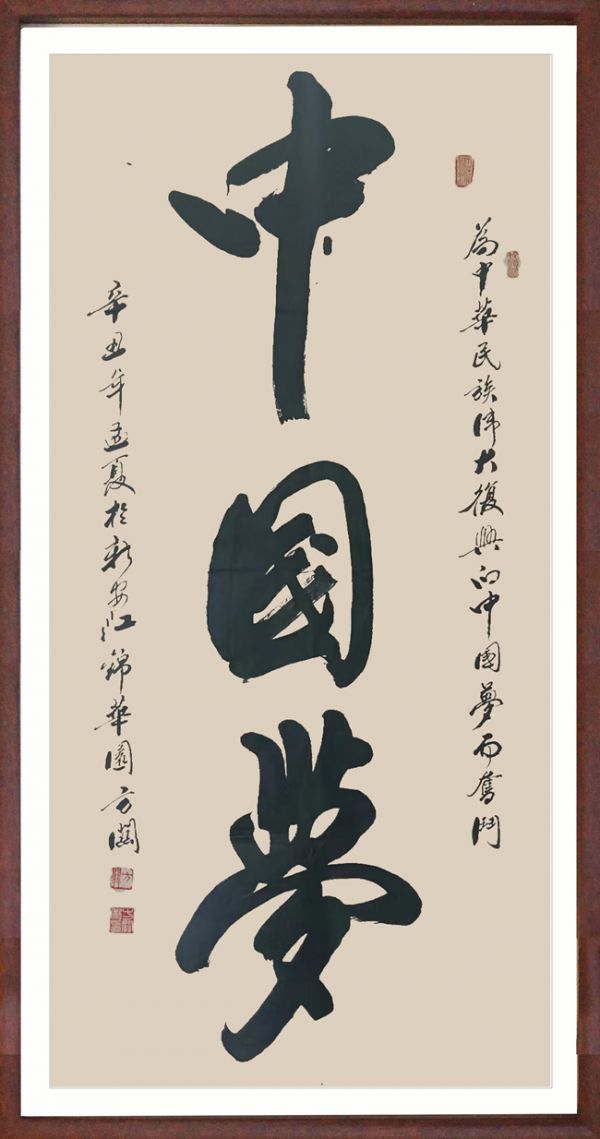 為中華民族偉大復興的中國夢而奮鬥
中國夢
辛丑年孟夏於新安江錦華園方闖